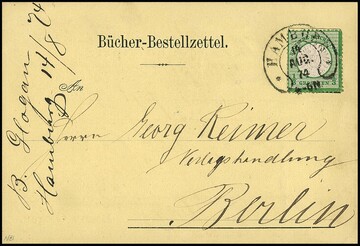 Bücher-Bestellzettel.
HAMBURG
14
AUG.
74
An
Herrn Georg Reimer
Verlagshandlung
Berlin
B. Glogau
Hamburg 14/8 74